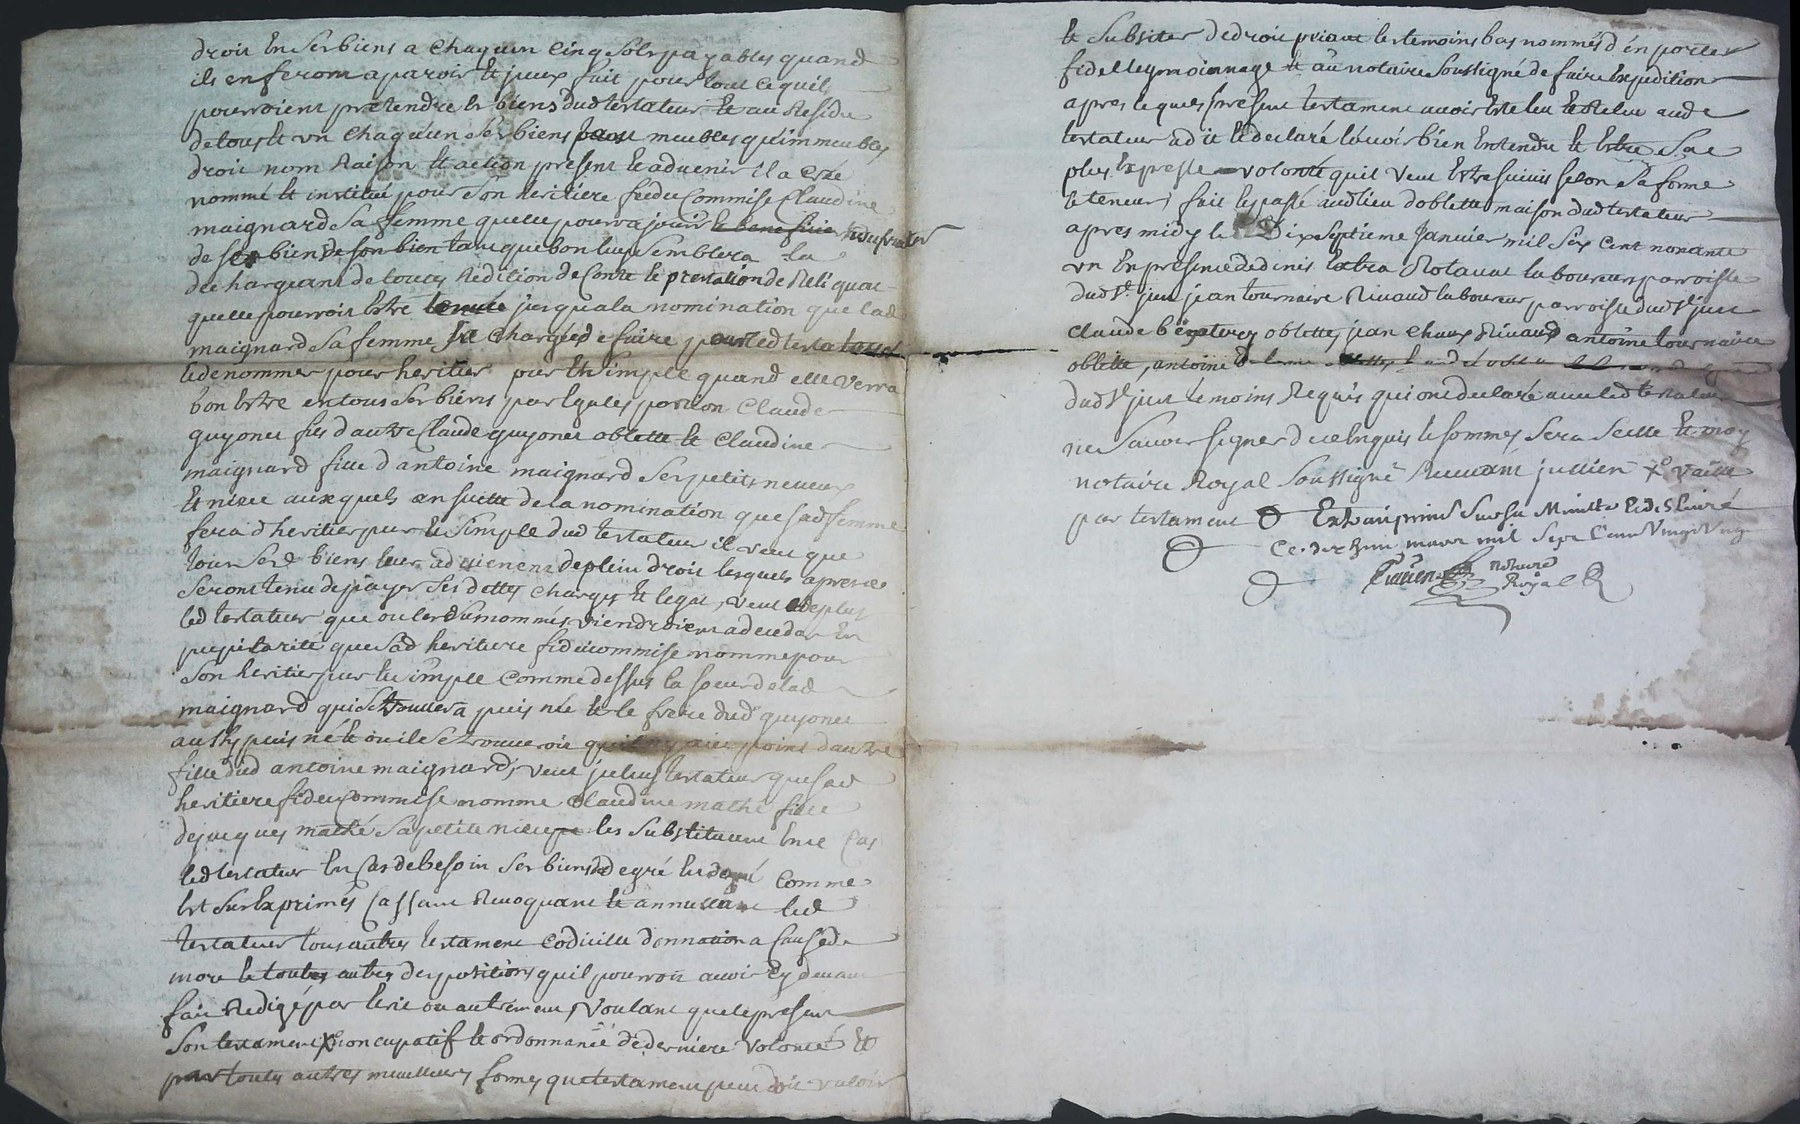 droit En ses biens a Chaquun Cinq Sols payables quand
ils en feront aparoir Et jceux fait pour tout ce quil
pourroient pretendre Es biens dud testateur Et au Residu
de tous Et un Chaquun Ses biens meubles qu'immeubles
droit nom Raison Et action present Et advenir il a Esté
nommé Et institué pour Son heritiere feideiCommise Claudine
maignard Sa femme quelle pourra jouir
de ses biens de son bien tant que bon luy Semblera La
dechargeant de toutes Redition de Conte Et prestation de Reliquat
quelle pourroit Estre tenuée jusqu a la nomination que lad
maignard Sa femme Est Chargée de faire par led testateur
Et de nommer pour heritier pur Et Simple quand elle Verra
bon Estre en tous Ses biens par Egales portion Claude
guyonet fils d'autre Claude guyonet oblette Et Claudine
maignard fille d'antoine maignard Ses petits neveux
Et niece auxquels en suitte de la nomination que sad femme
fera d'heritier pur Et Simple dud testateur il veut que
tous Sesd biens leur advienent de plein droit lesquels apres ce
Seront tenu de payer Ses dettes Charges Et legat, veut de plus
led testateur que ou lesd susnommés viendroient a deceder En
pupilarité que Sad heritiere fideicommise nomme pour
Son heritier pur Et Simple Comme dessus la soeur de lad
maignard qui Se trouvera puis née Et le frere dud guyonet
aussy puis né Et ou il Se trouveroit point d'autre
fille dud antoine maignard, veut jceluy testateur que sad
heritiere fideiCommise nomme Claudine mathé fille
de jacques mathé Sa petite niece les Substituant En ce Cas
led testateur En Cas de besoin Ses biens de degré En degré Comme
Est Sus Exprimés Cassant Revoquant Et annullant led
testateur tous autres testament Codicille donnation a Cause de
mort Et toutes autres dispositions quil pourroit avoir Cy devant
fait Redigé par Ecrit ou autrement, voulant que le present
Son testament noncupatif Et ordonnance de derniere Volonté Et
par toutes autres meilleures formes que testament peut Et doit valoir
Et Subsister de droit priant les temoins bas nommés d'en porter
fidelle temoignage Et au notaire Soussigné de faire Expedition
apres lequel present testament avoir Esté leu Et Releu aud
testateur a dit Et declaré l'avoir bien Entendu Et Estre Sa
plus Expresse volonté quil veut Estre Suivis Selon Sa forme
Et teneur, fait Et passé aud lieu d'oblette maison dud testateur
apres midy le Dixseptieme Janvier mil Six Cent nonante
un En presence de denis Rotaval laboureur parroisse
dud St. just jean tournaire Rivaud laboureur parroisse dud St. just
Claude oblette, jean Chaux Rivaud antoine tournaire
oblette, antoine
dud St. just temoins Requis qui ont declaré avec led testateur
ne Savoir Signer de ce Enquis Et Sommés Sera Scellé Et moy
notaire Royal Soussigné Recevant jullien vaille
par testament Extrait prins Sur Sa Minutte Et deslivré
Ce mars mil Sept Cent Vingt
notaire
Royal